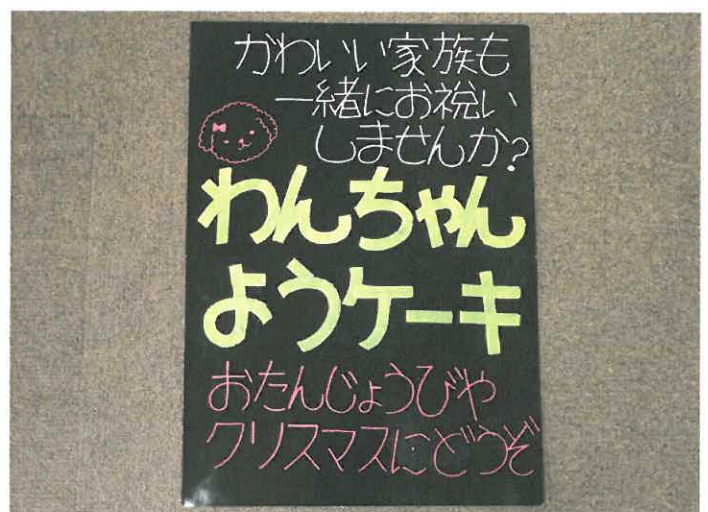 かわいい家族も
一緒にお祝い
しませんか?
わんちゃん
ようケーキ
おたんじょうびや
クリスマスにどうぞ